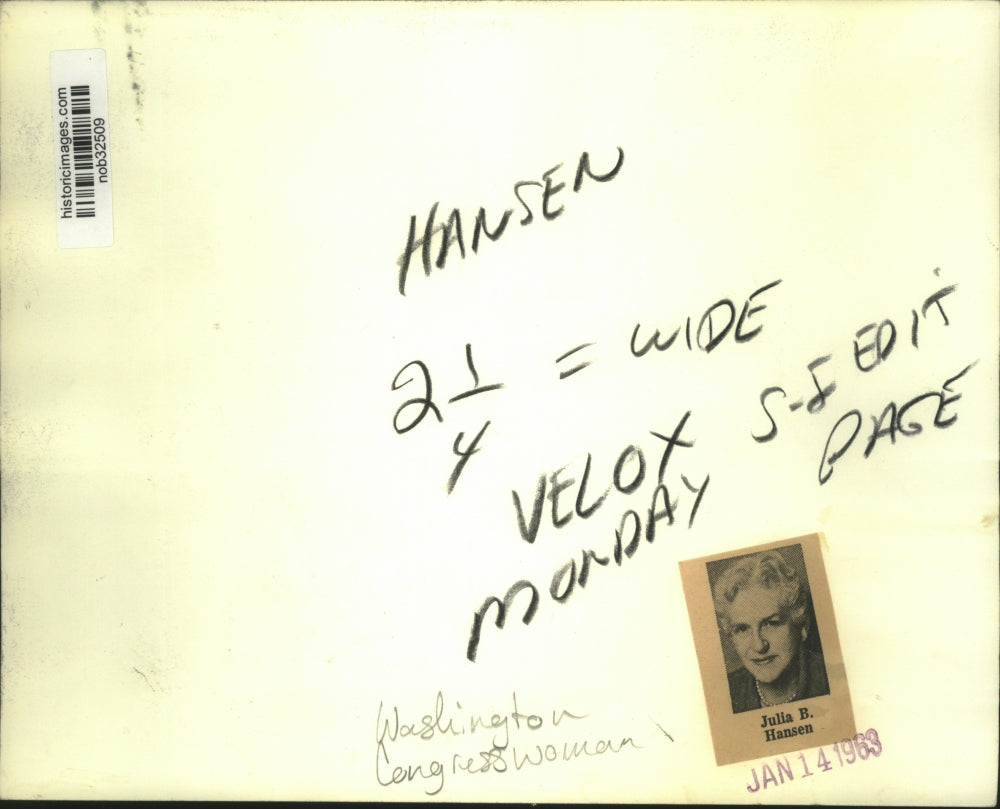 historicimages.com
nob32509
HANSEN
2 1/4 = WIDE
VELOX
MONDAY
EDIT
PAGE
Washington
Congresswoman
Julia B.
Hansen
JAN 14 1963